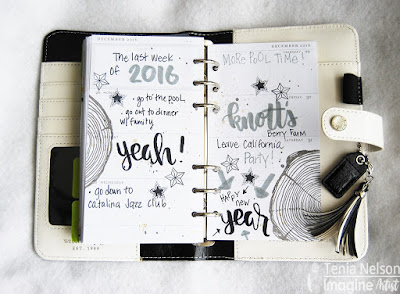 DECEMBER 2016
The last week
of 2016
• go to the pool
• go out to dinner
w/ family
yeah!
• go down to
Catalina Jazz Club.
EST. 1999
DECEMBER 2016
MORE POOL TIME!
knott's
Berry Farm
Leave California
Party!
HAPPY
new
year
Tenia Nelson
Imagine Artist